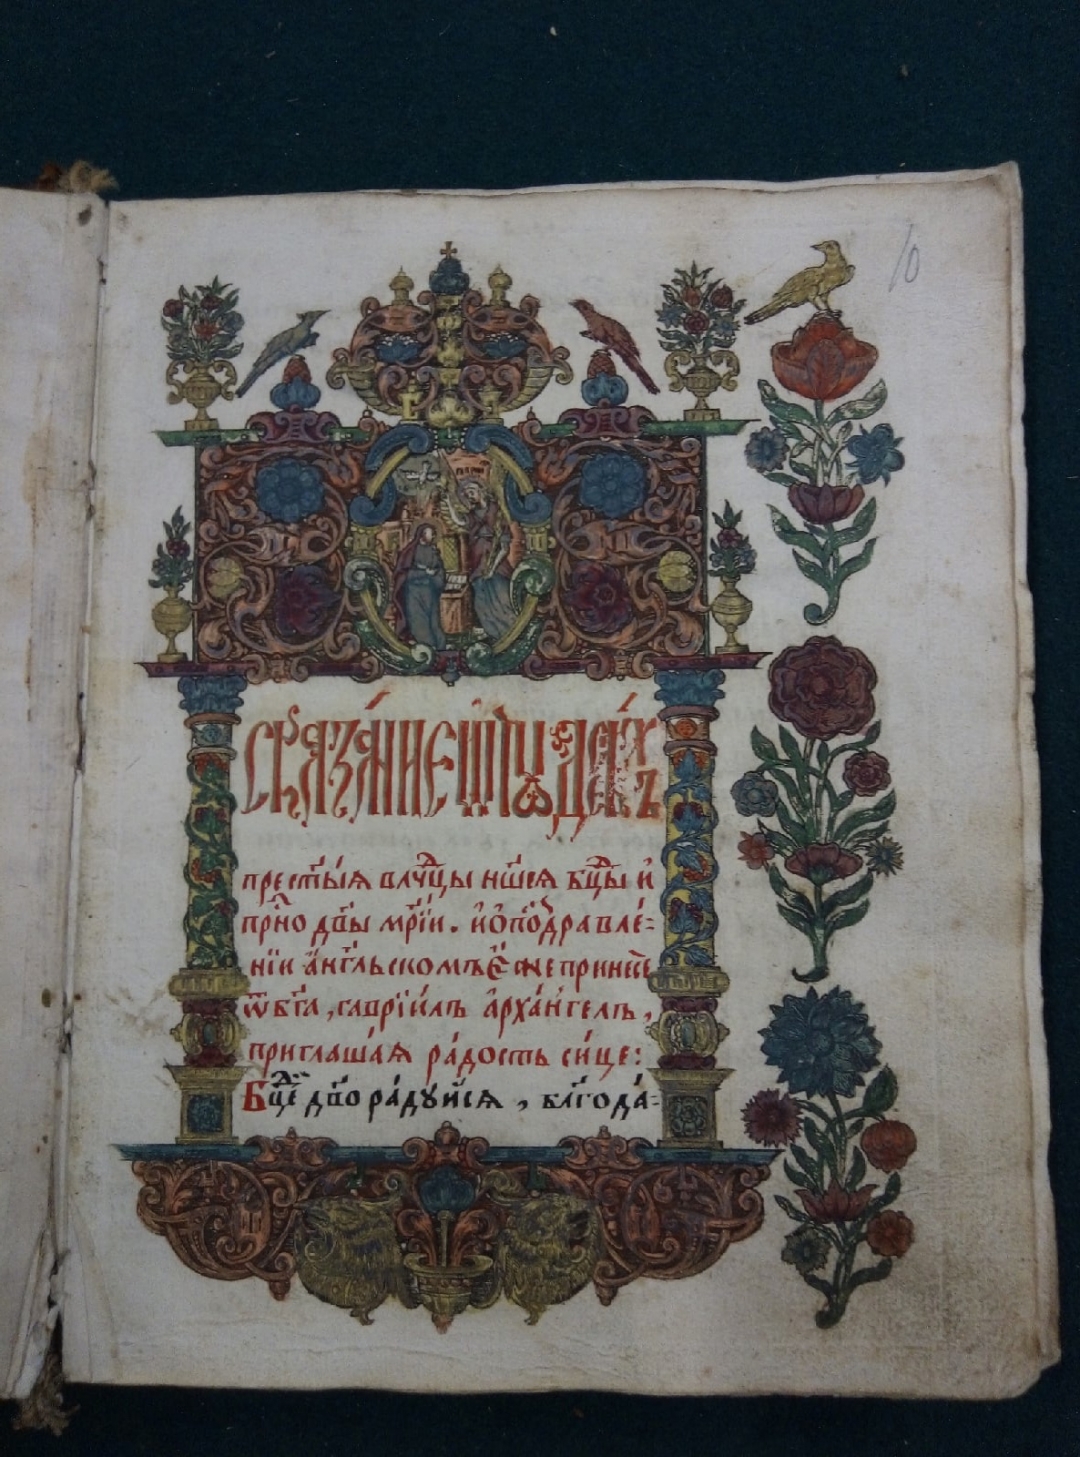 10
Сказание ѿ чꙋдесѣхъ
прест҃ы́я влчⷣцы нш҃ея бцⷣы и҆
при́но дв҃ы мр҃і́и. и҆ о҆ поздравле́-
нїи а҆́гг҃льскомъ є҆́же принесе́
ѿ бг҃а, гаврїи́лъ а҆рха́нгелъ,
приглаша́я ра́дость си́це:
Бцⷣе дв҃о ра́дуйся, блг҃ода́-